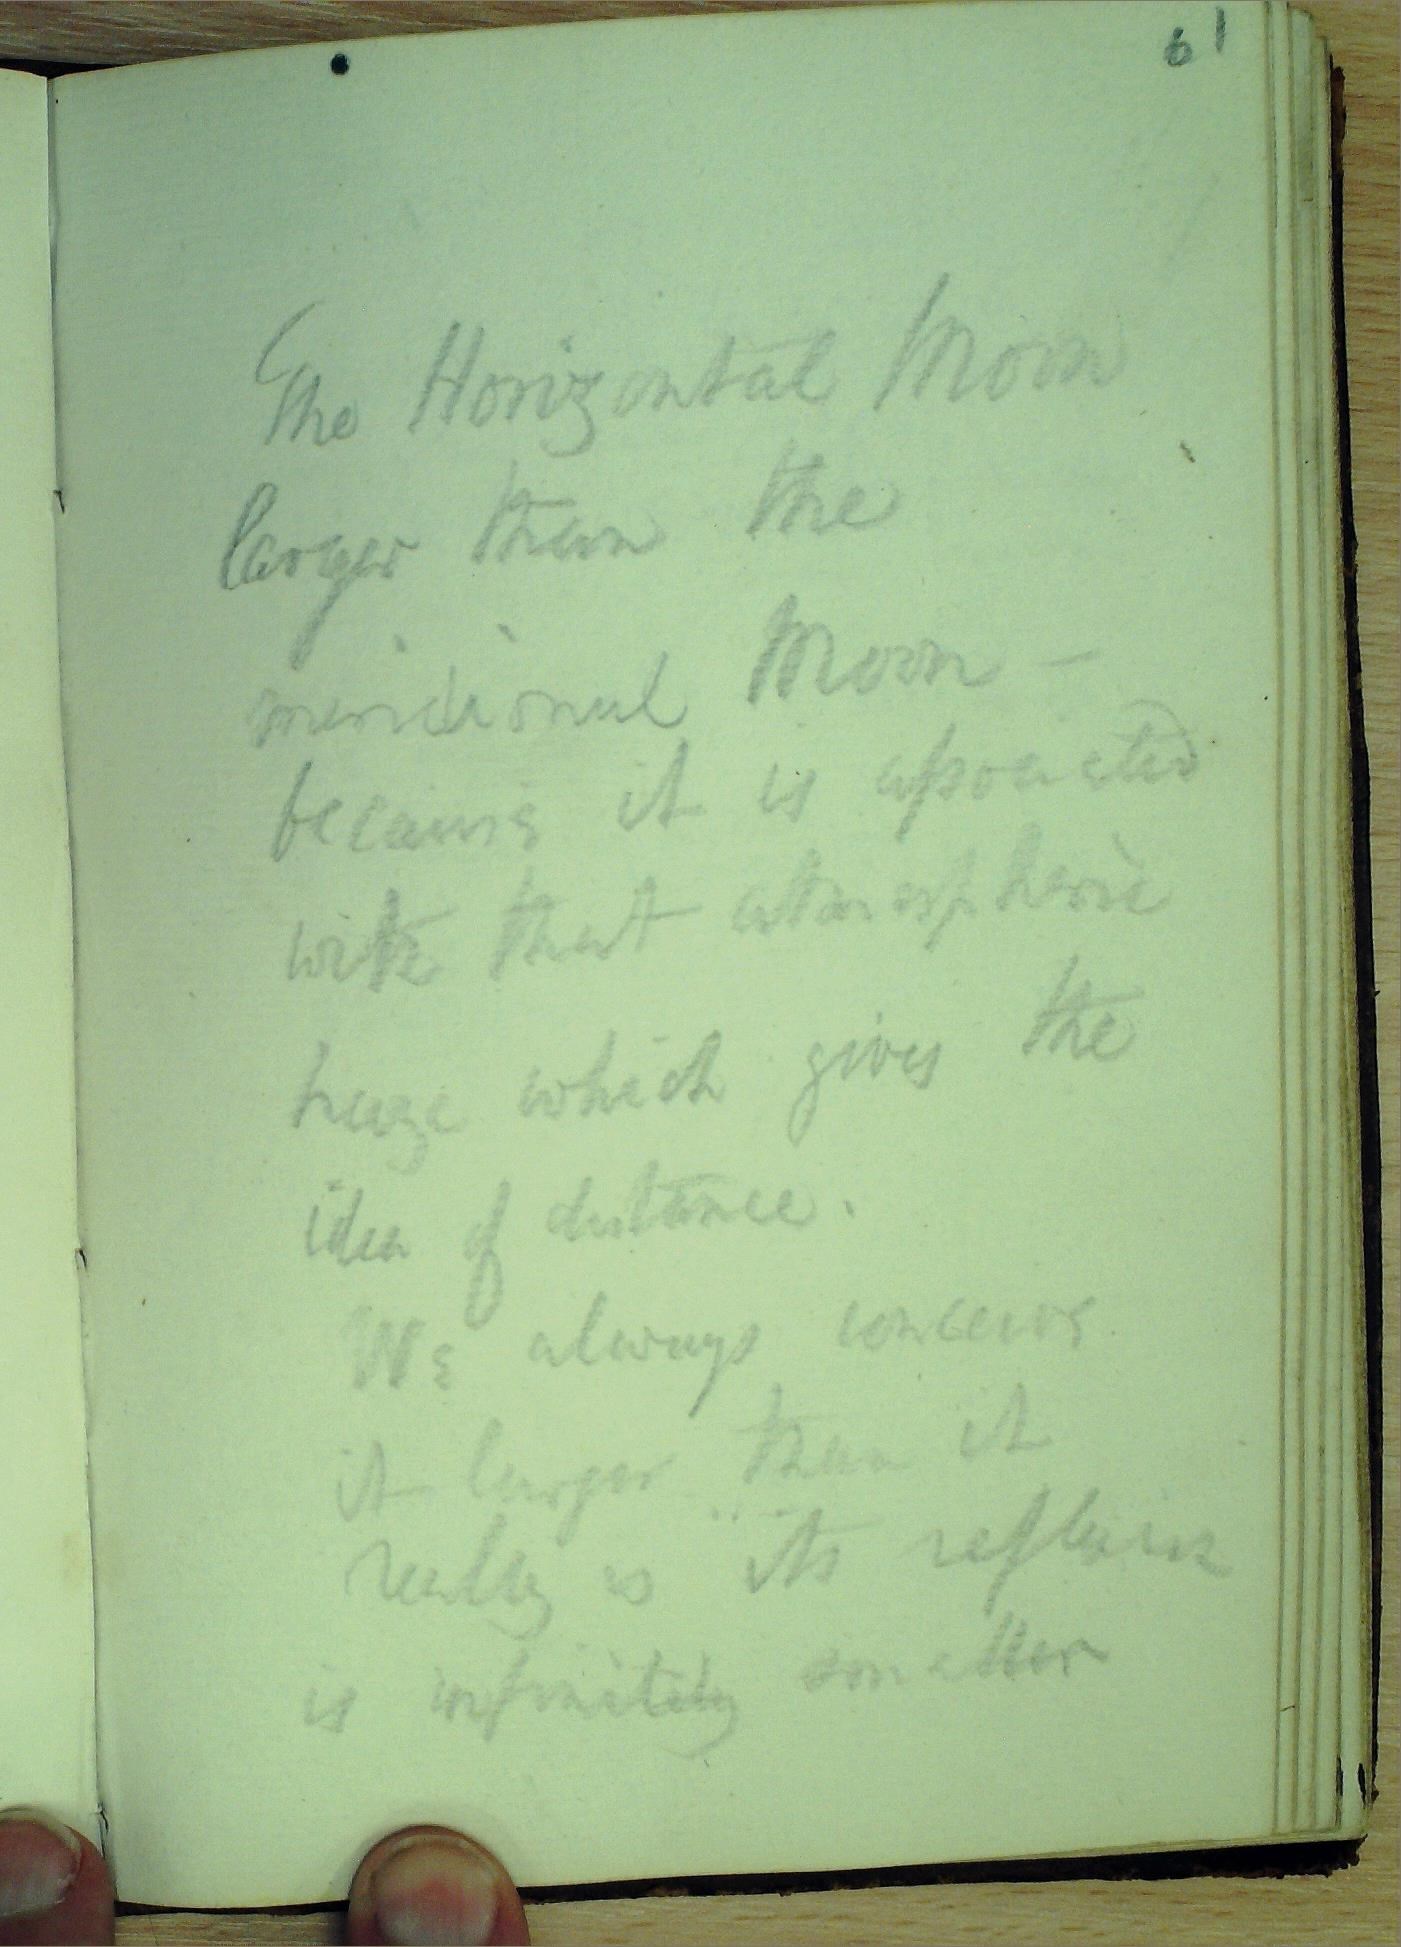 61
The Horizontal Moon
larger than the
meridional Moon –
because it is associated
with that atmospheric
haze which gives the
idea of distance.
We always conceive
it larger than it
really is its
is infinitely smaller